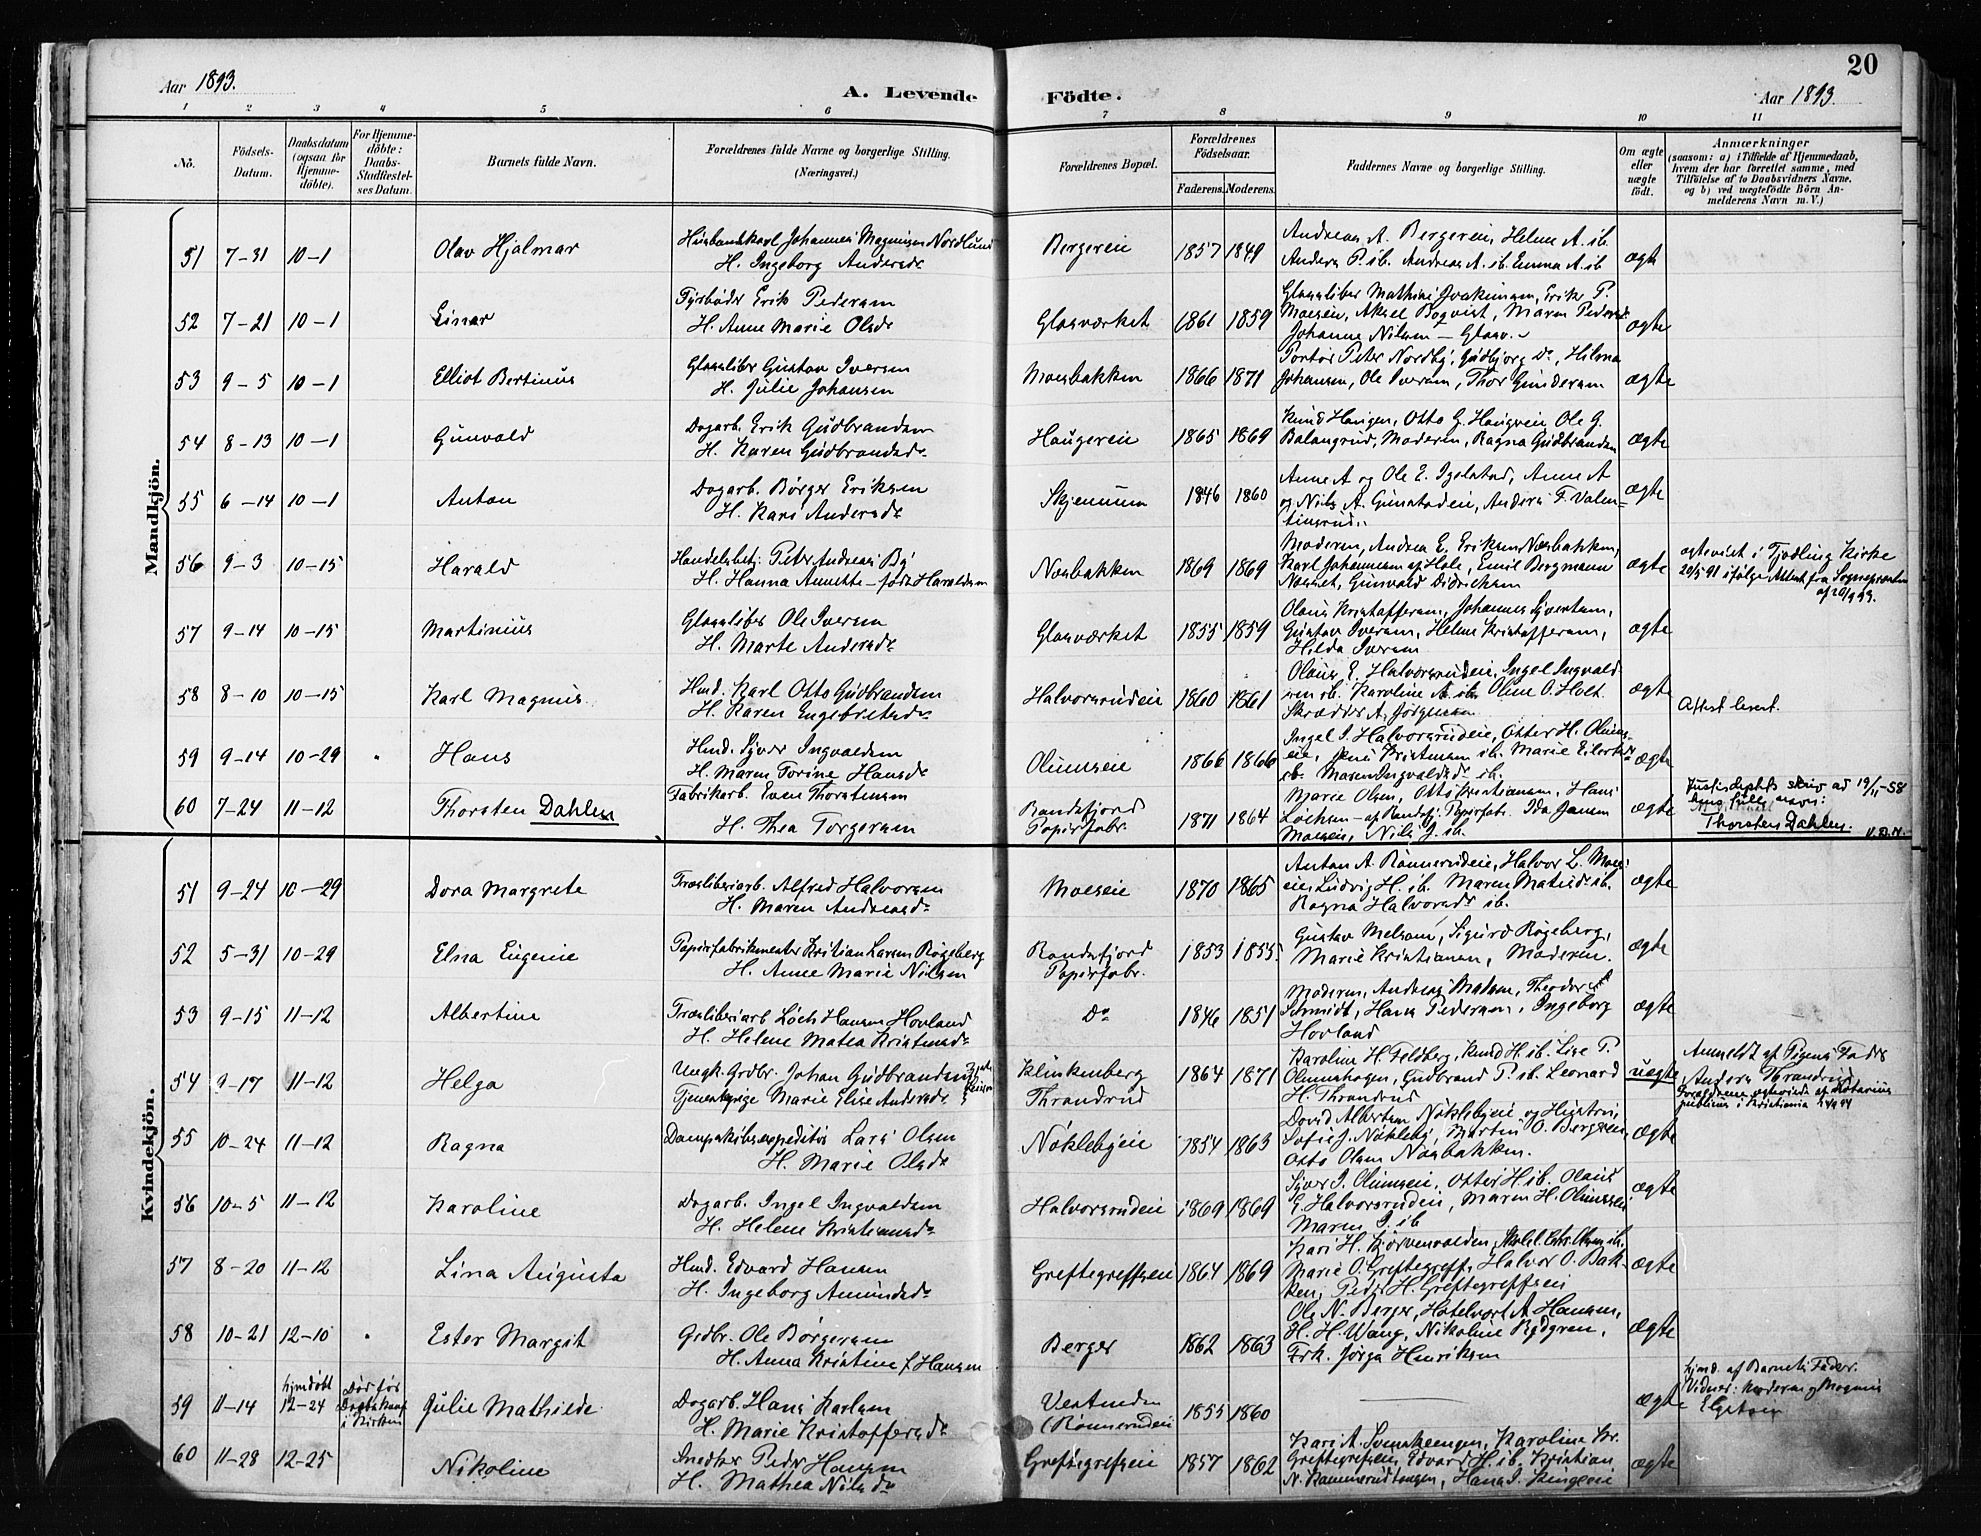 20
Aar 1893.
A. Levende Födte.
Aar 1893.
1 2 3 4 5 6 7 8 9 10 11
Nö.
Födsels-Datum.
Daabsdatum (ogsaa for Hjemme-döbte).
For Hjemme-döbte: Daabs-Stadfæstel-ses Datum.
Barnets fulde Navn.
Forældrenes fulde Navne og borgerlige Stilling. (Næringsvei.)
Forældrenes Bopæl.
Forældrenes Födselsaar.
Faderens. Moderens.
Faddernes Navne og borgerlige Stilling.
Om ægte eller uægte födt.
Anmærkninger
(saasom: a) i Tilfælde af Hjemmedaab, hvem der har forrettet samme, med Tilföielse af to Daabsvidners Navne, og b) ved uægtefödte Börn An-melderens Navn m. V.)
Mandkjön.
51 7-31 10-1 Olav Hjalmar Husbondskarl Johannes Magnusen Nordlund
H. Ingeborg Andersdr
Bergereie 1857 1849 Andreas A. Bergereie, Helene A. ib.
Anders P. ib. Andreas A. ib. Emma A. ib ægte
52 7-21 10-1 Einar Fyrbøder Erik Pedersen
H. Anne Marie Olsdr
Glasværket 1861 1859 Glassliber Mathias Joakimsen, Erik P.
Moeseie, Aksel Bogvist, Maren Pedersdr
Johannes Nilsen - Glasv. ægte
53 9-5 10-1 Elliot Bertinus Glassliber Gustav Iversen
H. Julie Johansen
Moesbakken 1866 1871 Portør Peter Nordby, Gudbjørg Do, Hilma
Johansen, Ole Iversen, Thor Gundersen ægte
54 8-13 10-1 Gunvald Dagarb. Erik Gudbrandsen
H. Karen Gudbrandsdr
Haugereie 1865 1869 Knud Haugen, Otto G. Haugreie Ole G.
Balangrud, Moderen, Ragna Gudbrandsen ægte
55 6-14 10-1 Anton Dagarb. Børger Eriksen
H. Kari Andersdr
Skjennum 1846 1860 Anne A og Ole E. Igelstad, Anne A
og Nils A. Gunstadeie, Anders F. Valen-
tinsrud. ægte
56 9-3 10-15 Harald Handelsbetj. Peter Andreas By
H. Hanna Annette - født Haraldsen
Næsbakken 1869 1869 Moderen, Andrea E. Eriksen Næsbakken,
Karl Johannesen af Hole, Emil Bergmann
Næsset, Gunvald Didriksen ægte
ægteviet i Tjodling Kirke
20/5 91 ifølge Attest fra Sognepresten
57 9-14 10-15 Martinius Glassliber Ole Iversen
H. Marte Andersdr
Glasværket 1855 1859 Olaus Kristoffersen, Johannes Syvertsen,
Gustav Iversen, Helene Kristoffersen,
Hilda Iversen ægte
58 8-10 10-15 Karl Magnus Hmd. Karl Otto Gudbrandsen
H. Karen Engebretsdr
Halvorsrudeie 1860 1861 Olaus E. Halvorsrudeie, Ingel Ingvald
sen ib. Karoline A. ib. Oline O. Holt.
Skrædder A. Jørgensen ægte
Attest levert.
59 9-14 10-29 Hans Hmd. Syver Ingvaldsen
H. Maren Torine Hansdr
Olimseie 1866 1866 Ingel I. Halvorsrudeie, Otter H. Olims
eie, Kristensen ib. Marie Eilertsdr
ib. Maren Ingvaldsdr ib. ægte
60 7-24 11-12 Thorsten Dahlen Fabrikarb. Even Thorstensen
H. Thea Torgersen
Randsfjord
Papirfabr. 1871 1864 Marie Olsen, Otto Kristiansen, Hans
Lochsen - af Randsfj. Papirfabr. Ida Jansen
Moeseie, Nils J. ib. ægte
Justisdeptets skriv ad 19/11-58
hans fulle navn:
Thorsten Dahlen.
Kvindekjön.
51 9-24 10-29 Dora Margrete Træsliberiarb. Alfred Halvorsen
H. Maren Andreasdr
Moeseie 1870 1865 Anton A. Rønnerudeie, Halvor L. Moes-
eie, Ludvig H. ib. Maren Matisdr ib.
Ragna Halvorsdr ib. ægte
52 5-31 10-29 Elna Eugenie Papirfabrikmester Kristian Larsen Røgeberg
H. Anne Marie Nilsen
Randsfjord
Papirfabr. 1853 1855 Gustav Melsom, Sigurd Røgeberg,
Marie Kristiansen, Moderen. ægte
53 9-15 11-12 Albertine Træsliberiarb Loch Hansen Hovland
H. Helene Matea Kristensdr
Do 1846 1851 Moderen, Andreas Madsen, Theodor
Schmidt, Hans Pedersen, Ingeborg
Hovland ægte
54 9-17 11-12 Helga Ungk. Grdbr. Johan Gudbrandsen
Tjenestepige Marie Elise Andersdr
Klinkenberg
Thrandrud 1864 1871 Karoline H. Feldberg, Knud H. ib. Lise P.
Olimshagen, Gudbrand P. ib. Leonard
H. Thrandrud uægte
Anmeldt af Pigens Fader
Anders Thrandrud
Forældrene ægteviede af Notarius
publicus i Kristiania
55 10-24 11-12 Ragna Dampskibsexpeditør Lars Olsen
H. Marie Olsdr
Nøklebyeie 1854 1863 David Albertsen Nøklebyeie og Hustru
Sofie J. Nøkleby, Martin O. Bergseie,
Otto Olsen Næsbakken. ægte
56 10-5 11-12 Karoline Dagarb. Ingel Ingvaldsen
H. Helene Kristiansdr
Halvorsrudeie 1869 1869 Syver I. Olimseie, Otter H ib. Olaus
E. Halvorsrudeie, Maren H. Olimseie
Maren I. ib ægte
57 8-20 11-12 Lina Augusta Hmd. Edvard Hansen
H. Ingeborg Amundsdr
Greftegreffseie 1864 1869 Kari H. Kjørvenvolden,
Marie O. Greftegreff, Halvor O. Bak-
ken, Peder H. Greftegreffseie ægte
58 10-21 12-10 Ester Margit Grdbr. Ole Børgersen
H. Anna Kristine f. Hansen
Berger 1862 1863 Ole N. Berger, Hotelvært A Hansen,
H. H. Wang, Nikoline Rødgren,
Frk. Jørga Henriksen ægte
59 11-14 hjemdøbt
12-24 Død før
i Kirken Julie Mathilde Dagarb. Hans Karlsen
H. Marie Kristoffersdr
Vestenden
(Rønnerudeie 1855 1860 ægte
hjmd. af Barnets Fader.
Vidner: Moderen og Magnus
60 11-28 12-25 Nikoline Snedker Peder Hansen
H. Mathea Nilsdr
Greftegrefseie 1857 1862 Kari A. Svenskeengen, Karoline Kr.
Greftegrefseie, Edvard H. ib. Kristian
N. Kammerudtangen, Hans I. ægte